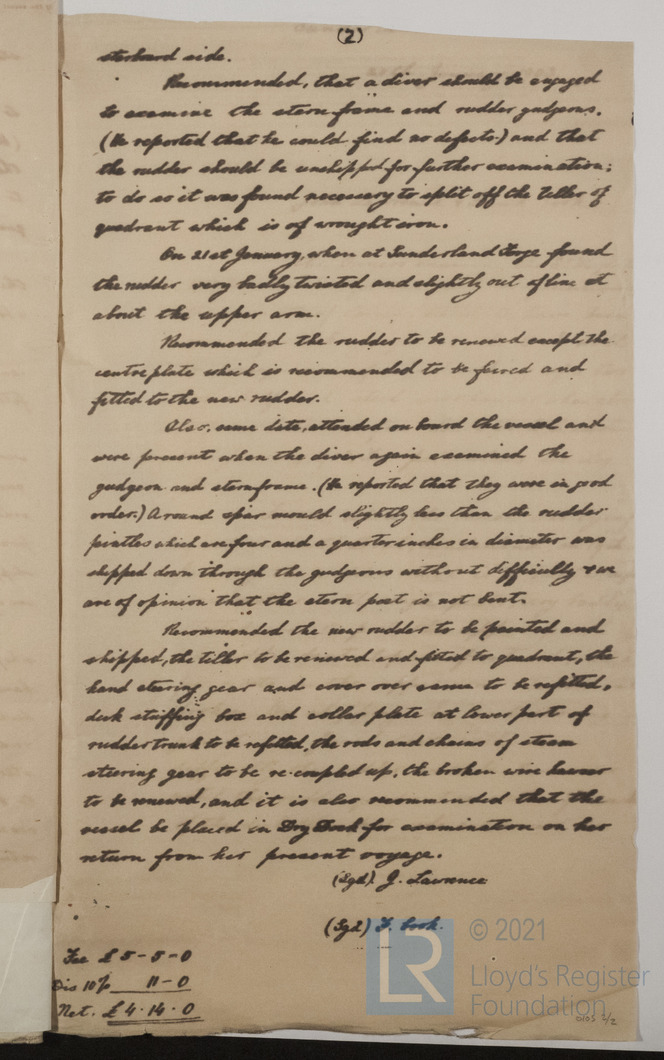 (2)
starboard side.
Recommended, that a diver should be engaged
to examine the stern frame and rudder gudgeons.
(He reported that he could find no defects.) and that
the rudder should be unshipped for further examination;
to do so it was found necessary to split off the tiller of
quadrant which is of wrought iron.
On 21st January, when at Sunderland Forge found
the rudder very badly twisted and slightly out of line at
about the upper arm.
Recommended the rudder to be renewed except the
centreplate which is recommended to be faired and
fitted to the new rudder.
Also, same date, attended on board the vessel and
were present when the diver again examined the
gudgeon and sternframe. (He reported that they were in good
order.) A round spar mould slightly less than the rudder
pintles which are four and a quarter inches in diameter was
shipped down through the gudgeons without difficulty & we
are of opinion that the stern post is not bent.
Recommended the new rudder to be painted and
shipped, the tiller to be renewed and fitted to quadrant, the
hand steering gear and cover over same to be refitted,
deck stuffing box and collar plate at lower part of
rudder trunk to be refitted, the rods and chains of steam
steering gear to be re-coupled up, the broken wire hawser
to be renewed, and it is also recommended that the
vessel be placed in Dry Dock for examination on her
return from her present voyage.
(Sgd). J. Lawrence
(Sgd) F. Cook.
Fee £5-5-0
Dis 10% 11-0
Net. £4.14.0
LR
© 2021
Lloyd's Register
Foundation
0105 2/2